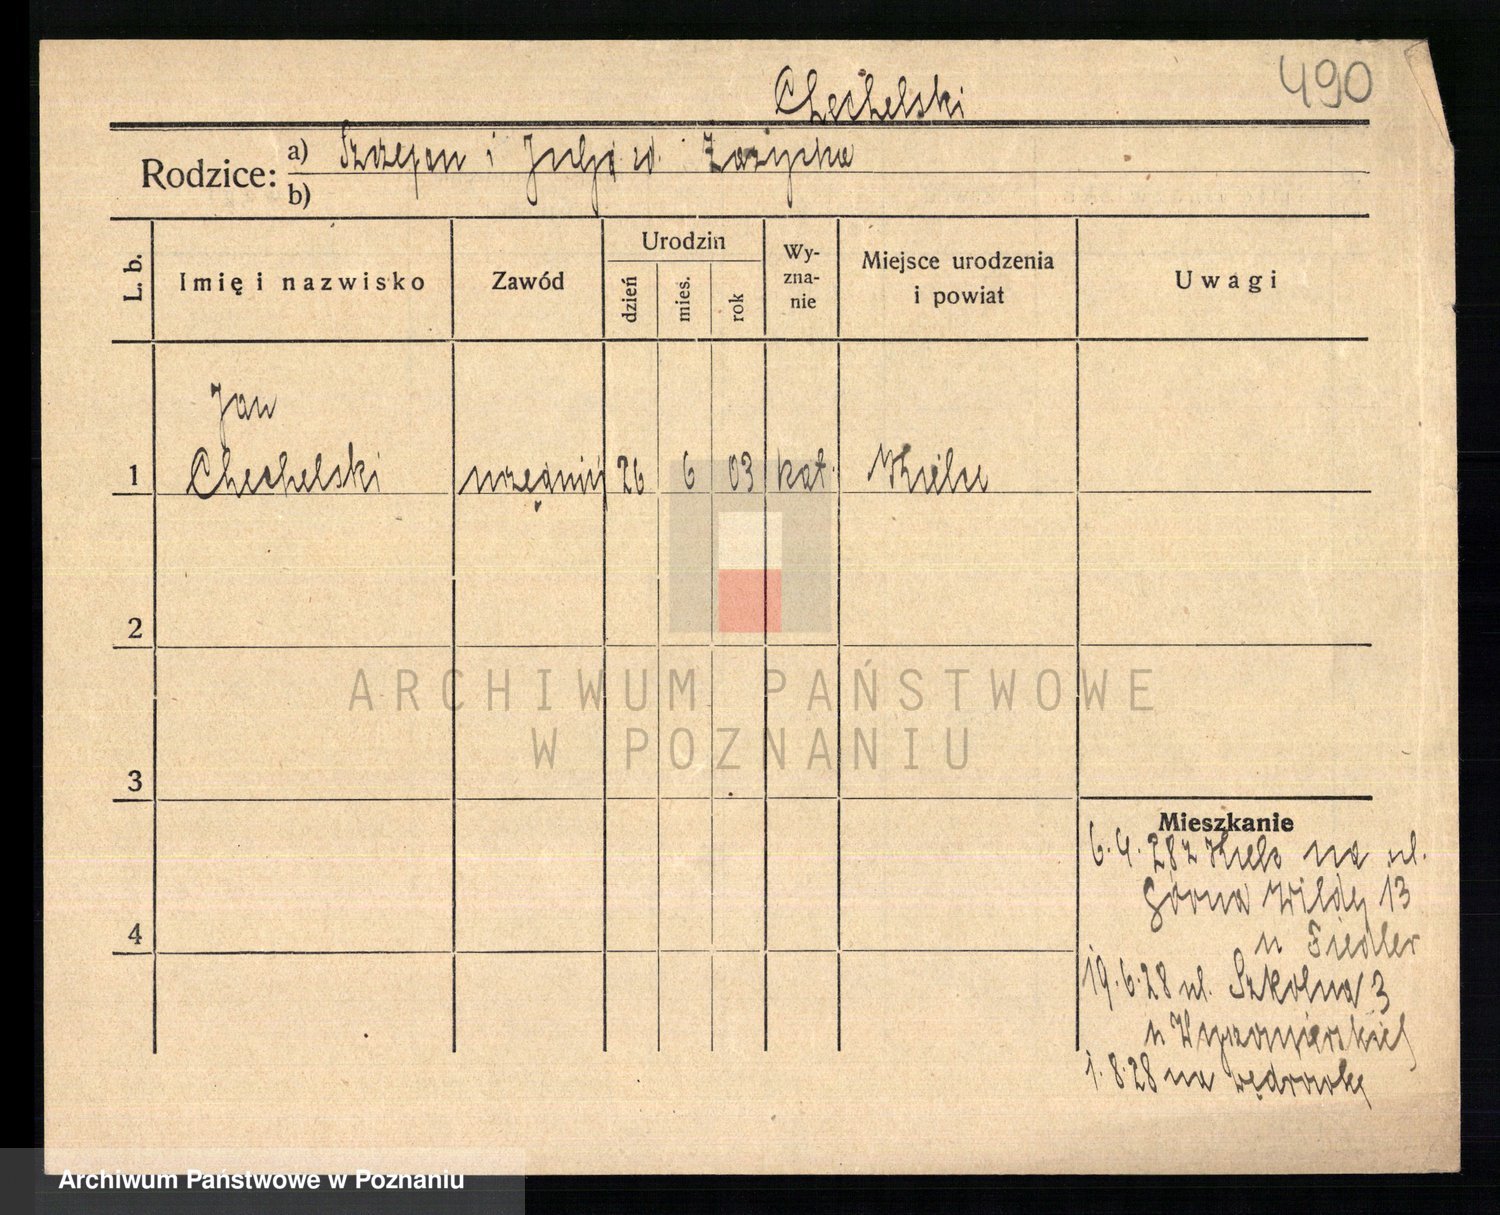 490
Chechelski
Rodzice: a) Szczepan i Julja z d. Zarzycka
b)
L. b. Imię i nazwisko Zawód Urodzin dzień mies. rok Wy-zna-nie Miejsce urodzenia i powiat Uwagi
Jan
1 Chechelski urzędnik 26 6 03 kat. Kielce
2
3
4
Mieszkanie
6.4.28 z Kielc na ul.
Górna Wilda 13
u Fiedler
19.6.28 ul. Szkolna 3
u
1.8.28 na wędrówkę
ARCHIWUM PAŃSTWOWE
W POZNANIU
Archiwum Państwowe w Poznaniu